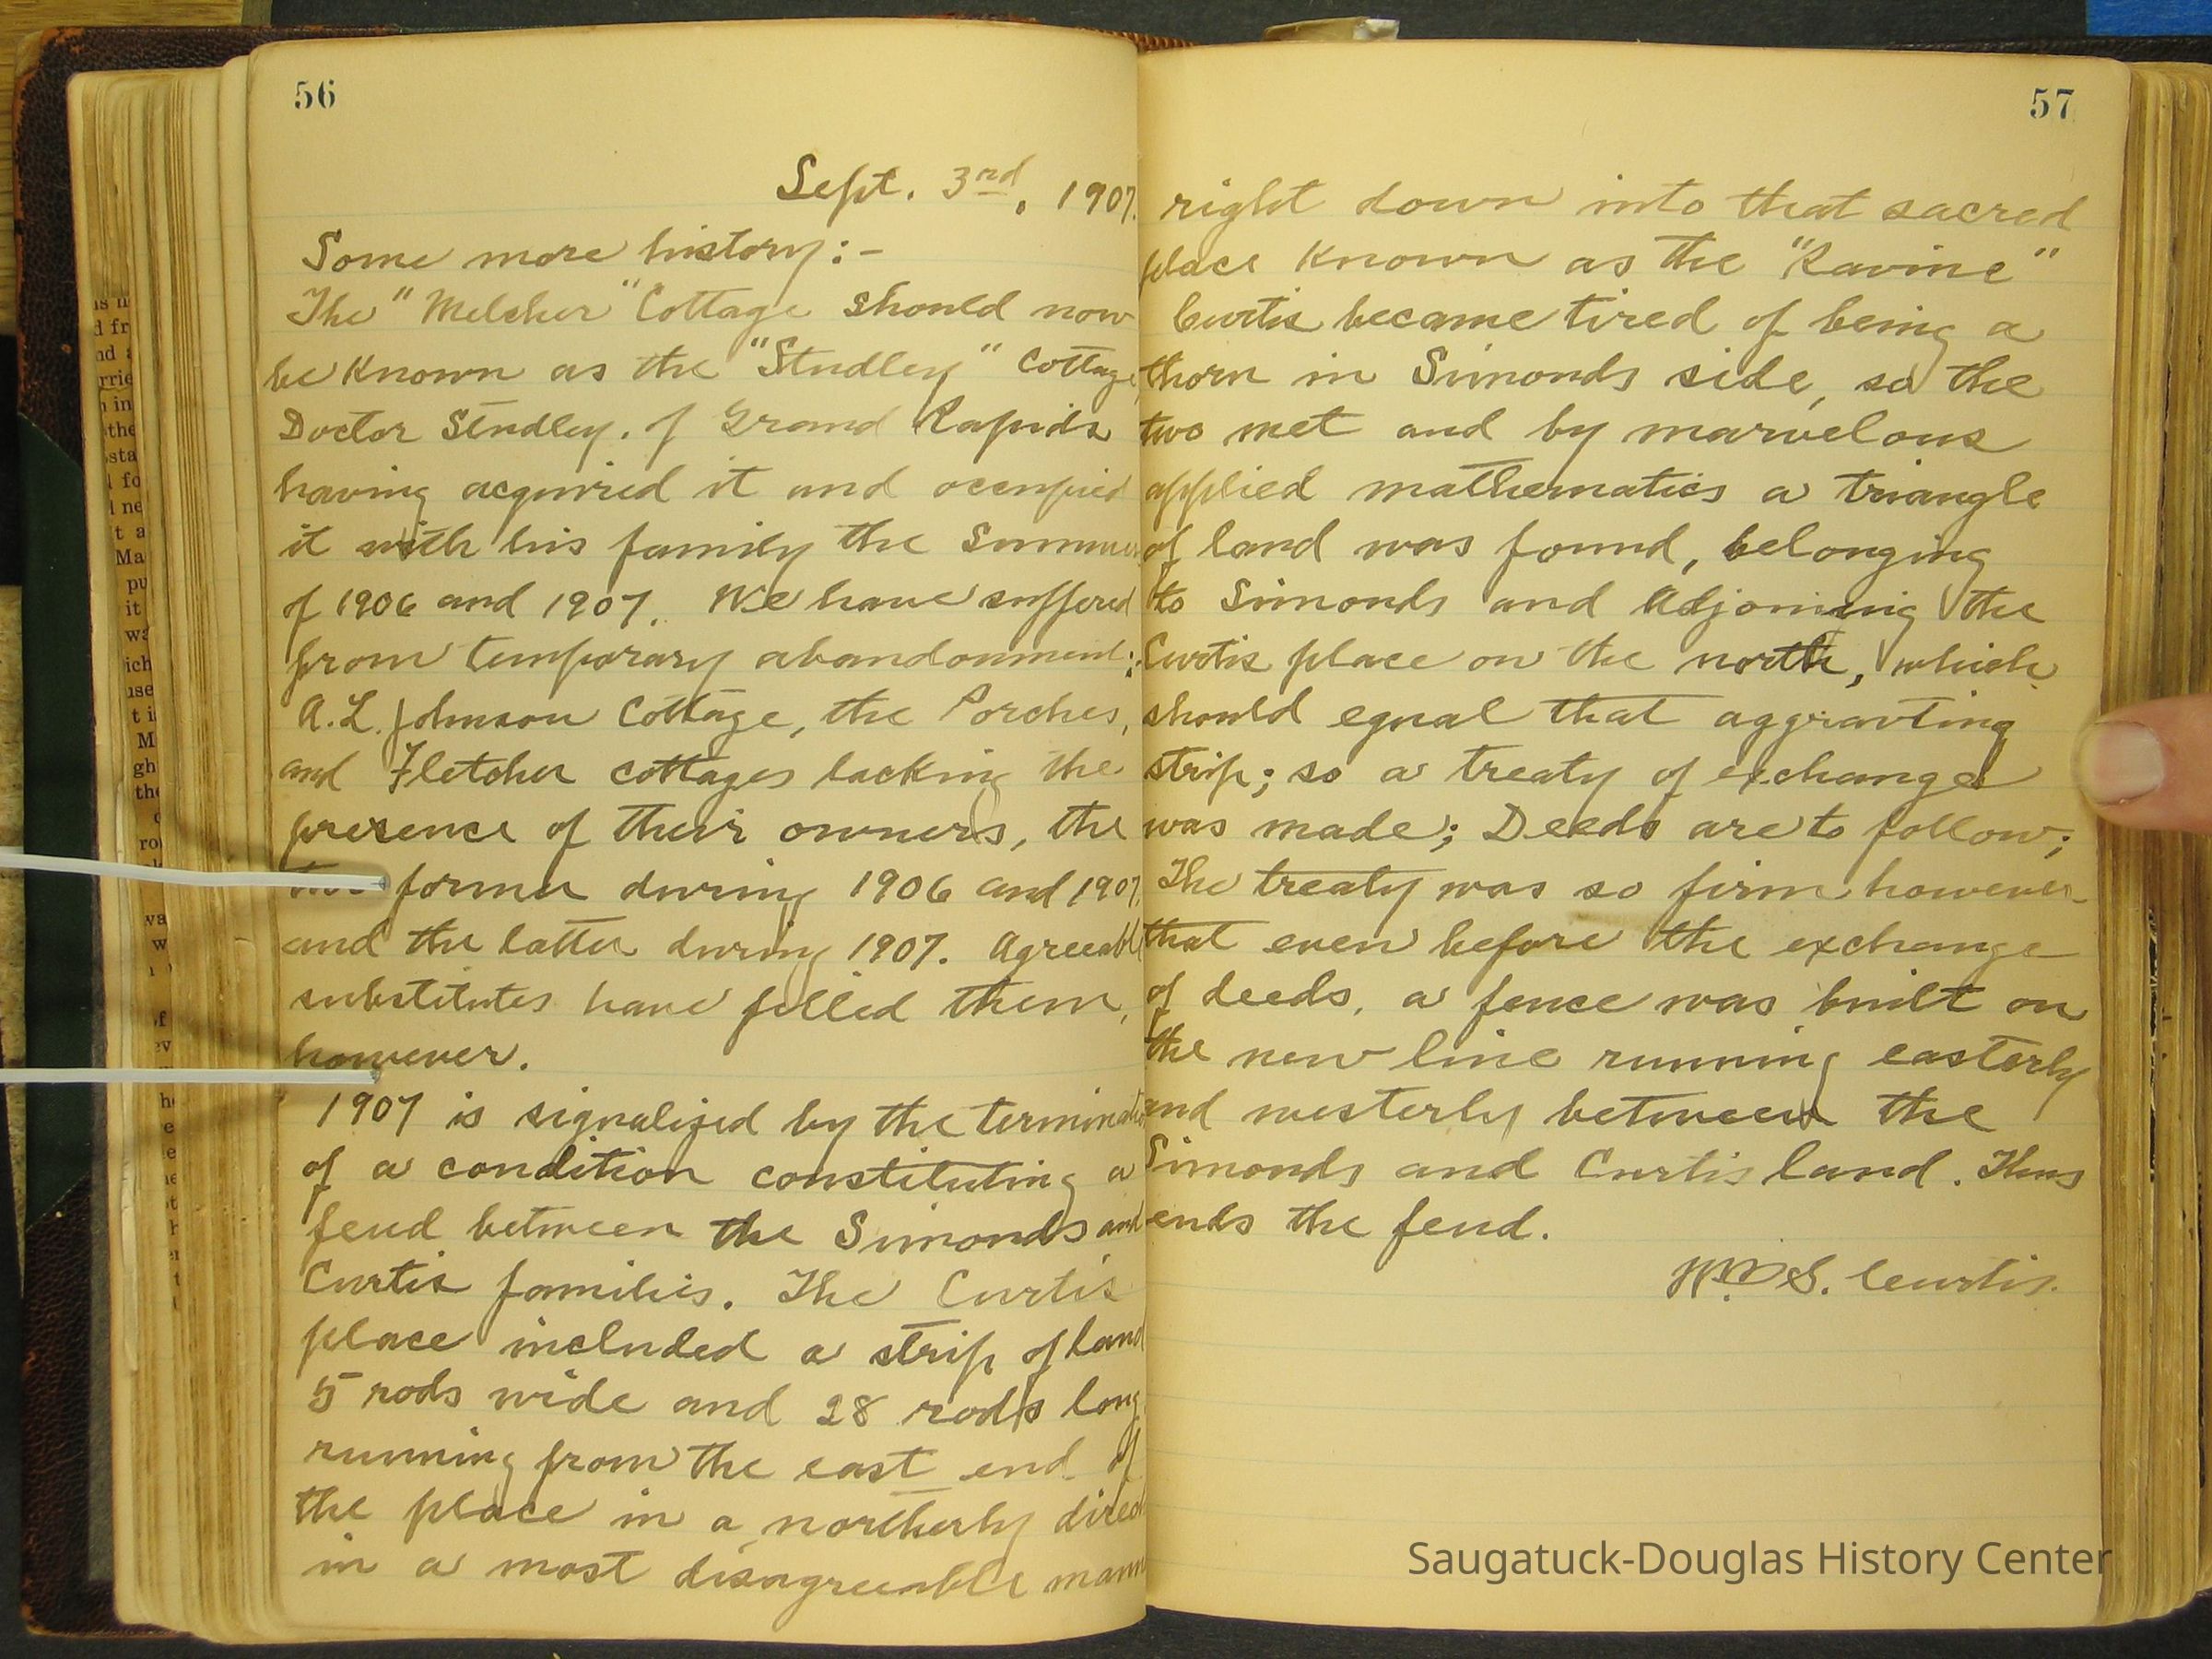 56
Sept. 3rd, 1907.
Some more history:-
The "Melcher" Cottage should now
be known as the "Studley" Cottage,
Doctor Studley. of Grand Rapids
having acquired it and occupied
it with his family the Summer
of 1906 and 1907. We have suffered
from temporary abandonment;
A.L. Johnson Cottage, the Porches,
and Fletcher cottages lacking the
presence of their owners, the
two former during 1906 and 1907,
and the latter during 1907. Agreeabl
substitutes have filled them,
however.
1907 is signalized by the terminatio
of a condition constituting a
feud between the Simonds and
Curtis families. The Curtis
place included a strip of land
5 rods wide and 28 rods long
running from the east end of
the place in a northerly direct
in a most disagreeable mann
57
right down into that sacred
place known as the "Ravine"
Curtis became tired of being a
thorn in Simonds side, so the
two met and by marvelous
applied mathematics a triangle
of land was found, belonging
to Simonds and adjoining the
Curtis place on the north, which
should equal that aggravting
strip; so a treaty of exchange
was made; Deeds are to follow;
The treaty was so firm however
that even before the exchange
of deeds, a fence was built on
the new line running easterly
and westerly between the
Simonds and Curtis land. Thus
ends the feud.
Wm S. Curtis.
Saugatuck-Douglas History Center